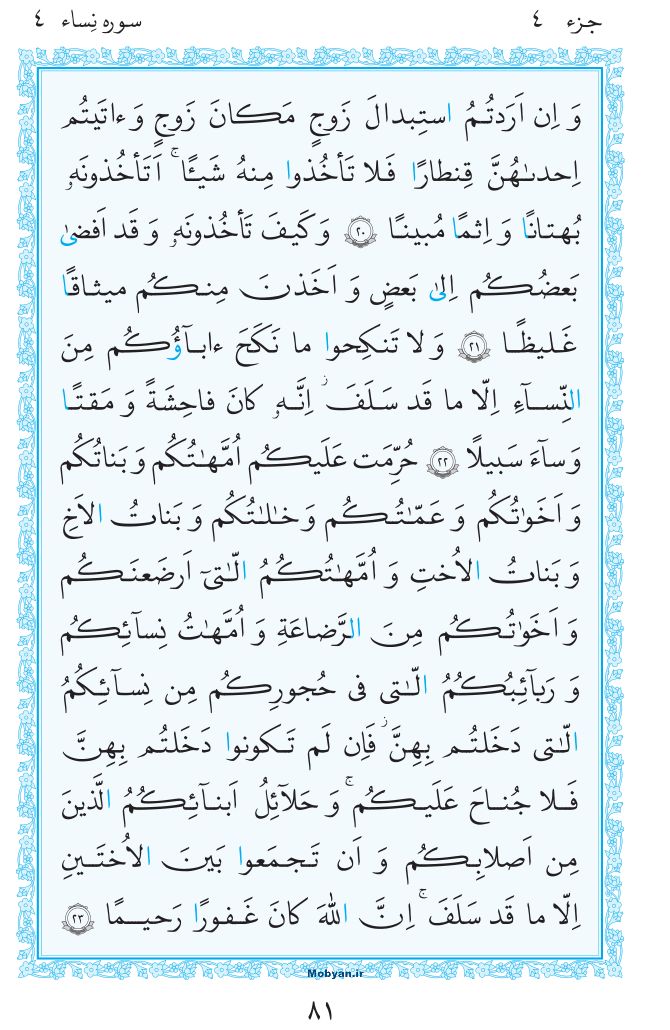 جزء ٤ سوره نِساء ٤
وَ اِن اَرَدتُمُ استِبدالَ زَوجٍ مَکانَ زَوجٍ وَ ءاتَیتُم
اِحدىٰهُنَّ قِنطارًا فَلا تَأخُذوا مِنهُ شَیـًٔا ۚ اَتَأخُذونَهۥ
بُهتانًا وَ اِثمًا مُبینًا ﴿٢٠﴾ وَ کَیفَ تَأخُذونَهۥ وَ قَد اَفضىٰ
بَعضُکُم اِلىٰ بَعضٍ وَ اَخَذنَ مِنکُم میثاقًا
غَلیظًا ﴿٢١﴾ وَ لا تَنکِحوا ما نَکَحَ ءابآؤُکُم مِنَ
النِّسآءِ اِلّا ما قَد سَلَفَ ۚ اِنَّهۥ کانَ فاحِشَةً وَ مَقتًا
وَ سآءَ سَبیلًا ﴿٢٢﴾ حُرِّمَت عَلَیکُم اُمَّهٰتُکُم وَ بَناتُکُم
وَ اَخَوٰتُکُم وَ عَمّٰتُکُم وَ خٰلٰتُکُم وَ بَناتُ الاَخِ
وَ بَناتُ الاُختِ وَ اُمَّهٰتُکُمُ الّٰتىٓ اَرضَعنَکُم
وَ اَخَوٰتُکُم مِنَ الرَّضاعَةِ وَ اُمَّهٰتُ نِسآئِکُم
وَ رَبآئِبُکُمُ الّٰتى فى حُجورِکُم مِن نِسآئِکُمُ
الّٰتى دَخَلتُم بِهِنَّ ۖ فَاِن لَم تَکونوا دَخَلتُم بِهِنَّ
فَلا جُناحَ عَلَیکُم ۚ وَ حَلآئِلُ اَبنآئِکُمُ الَّذینَ
مِن اَصلابِکُم وَ اَن تَجمَعوا بَینَ الاُختَینِ
اِلّا ما قَد سَلَفَ ۚ اِنَّ اللّٰهَ کانَ غَفورًا رَحیمًا ﴿٢٣﴾
Mobyan.ir
٨١